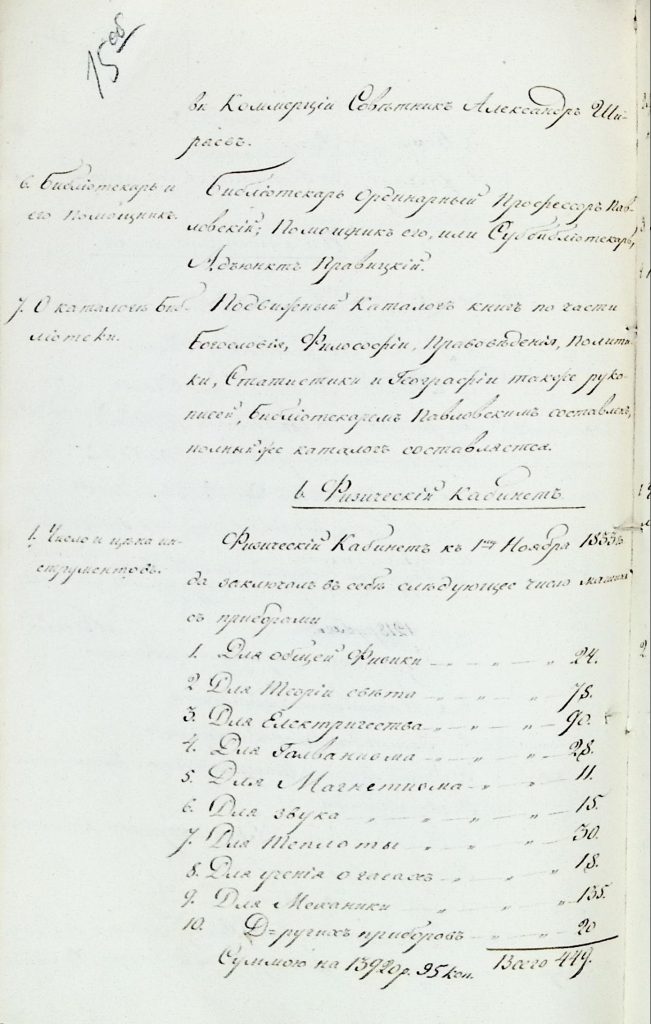 15 об
вн Коммерціи Совѣтникъ Александръ Ши-
ряевъ.
6. Библіотекарь и
его Помощникъ.
Библіотекарь Ординарный Профессоръ Пав-
ловскій; Помощникъ его, или Суббибліотекарь,
Адъюнктъ Правицкій.
7. О каталогѣ Биб-
ліотеки.
Подвижный Каталогъ книгъ по части
Богословія, Философіи, Правовѣденія, Полити-
ки, Статистики и Географіи также руко-
писей, Библіотекаремъ Павловскимъ составленъ,
полный же каталогъ составляется.
b. Физическій Кабинетъ.
1. Число и цѣна ин-
струментовъ.
Физическій Кабинетъ къ 1му Ноября 1833 го-
да заключалъ въ себѣ слѣдующее число машинъ
съ приборами
1. Для общей Физики 24.
2 Для Теоріи свѣта 78.
3. Для Електричества 90.
4. Для Галванизма 28.
5. Для Магнетизма 11.
6. Для звука 15.
7. Для Теплоты 30.
8. Для ученія о газахъ 18.
9. Для Механики 135.
10. Д=ругихъ приборовъ 20
Суммою на 13920р. 95 коп. Всего 449.